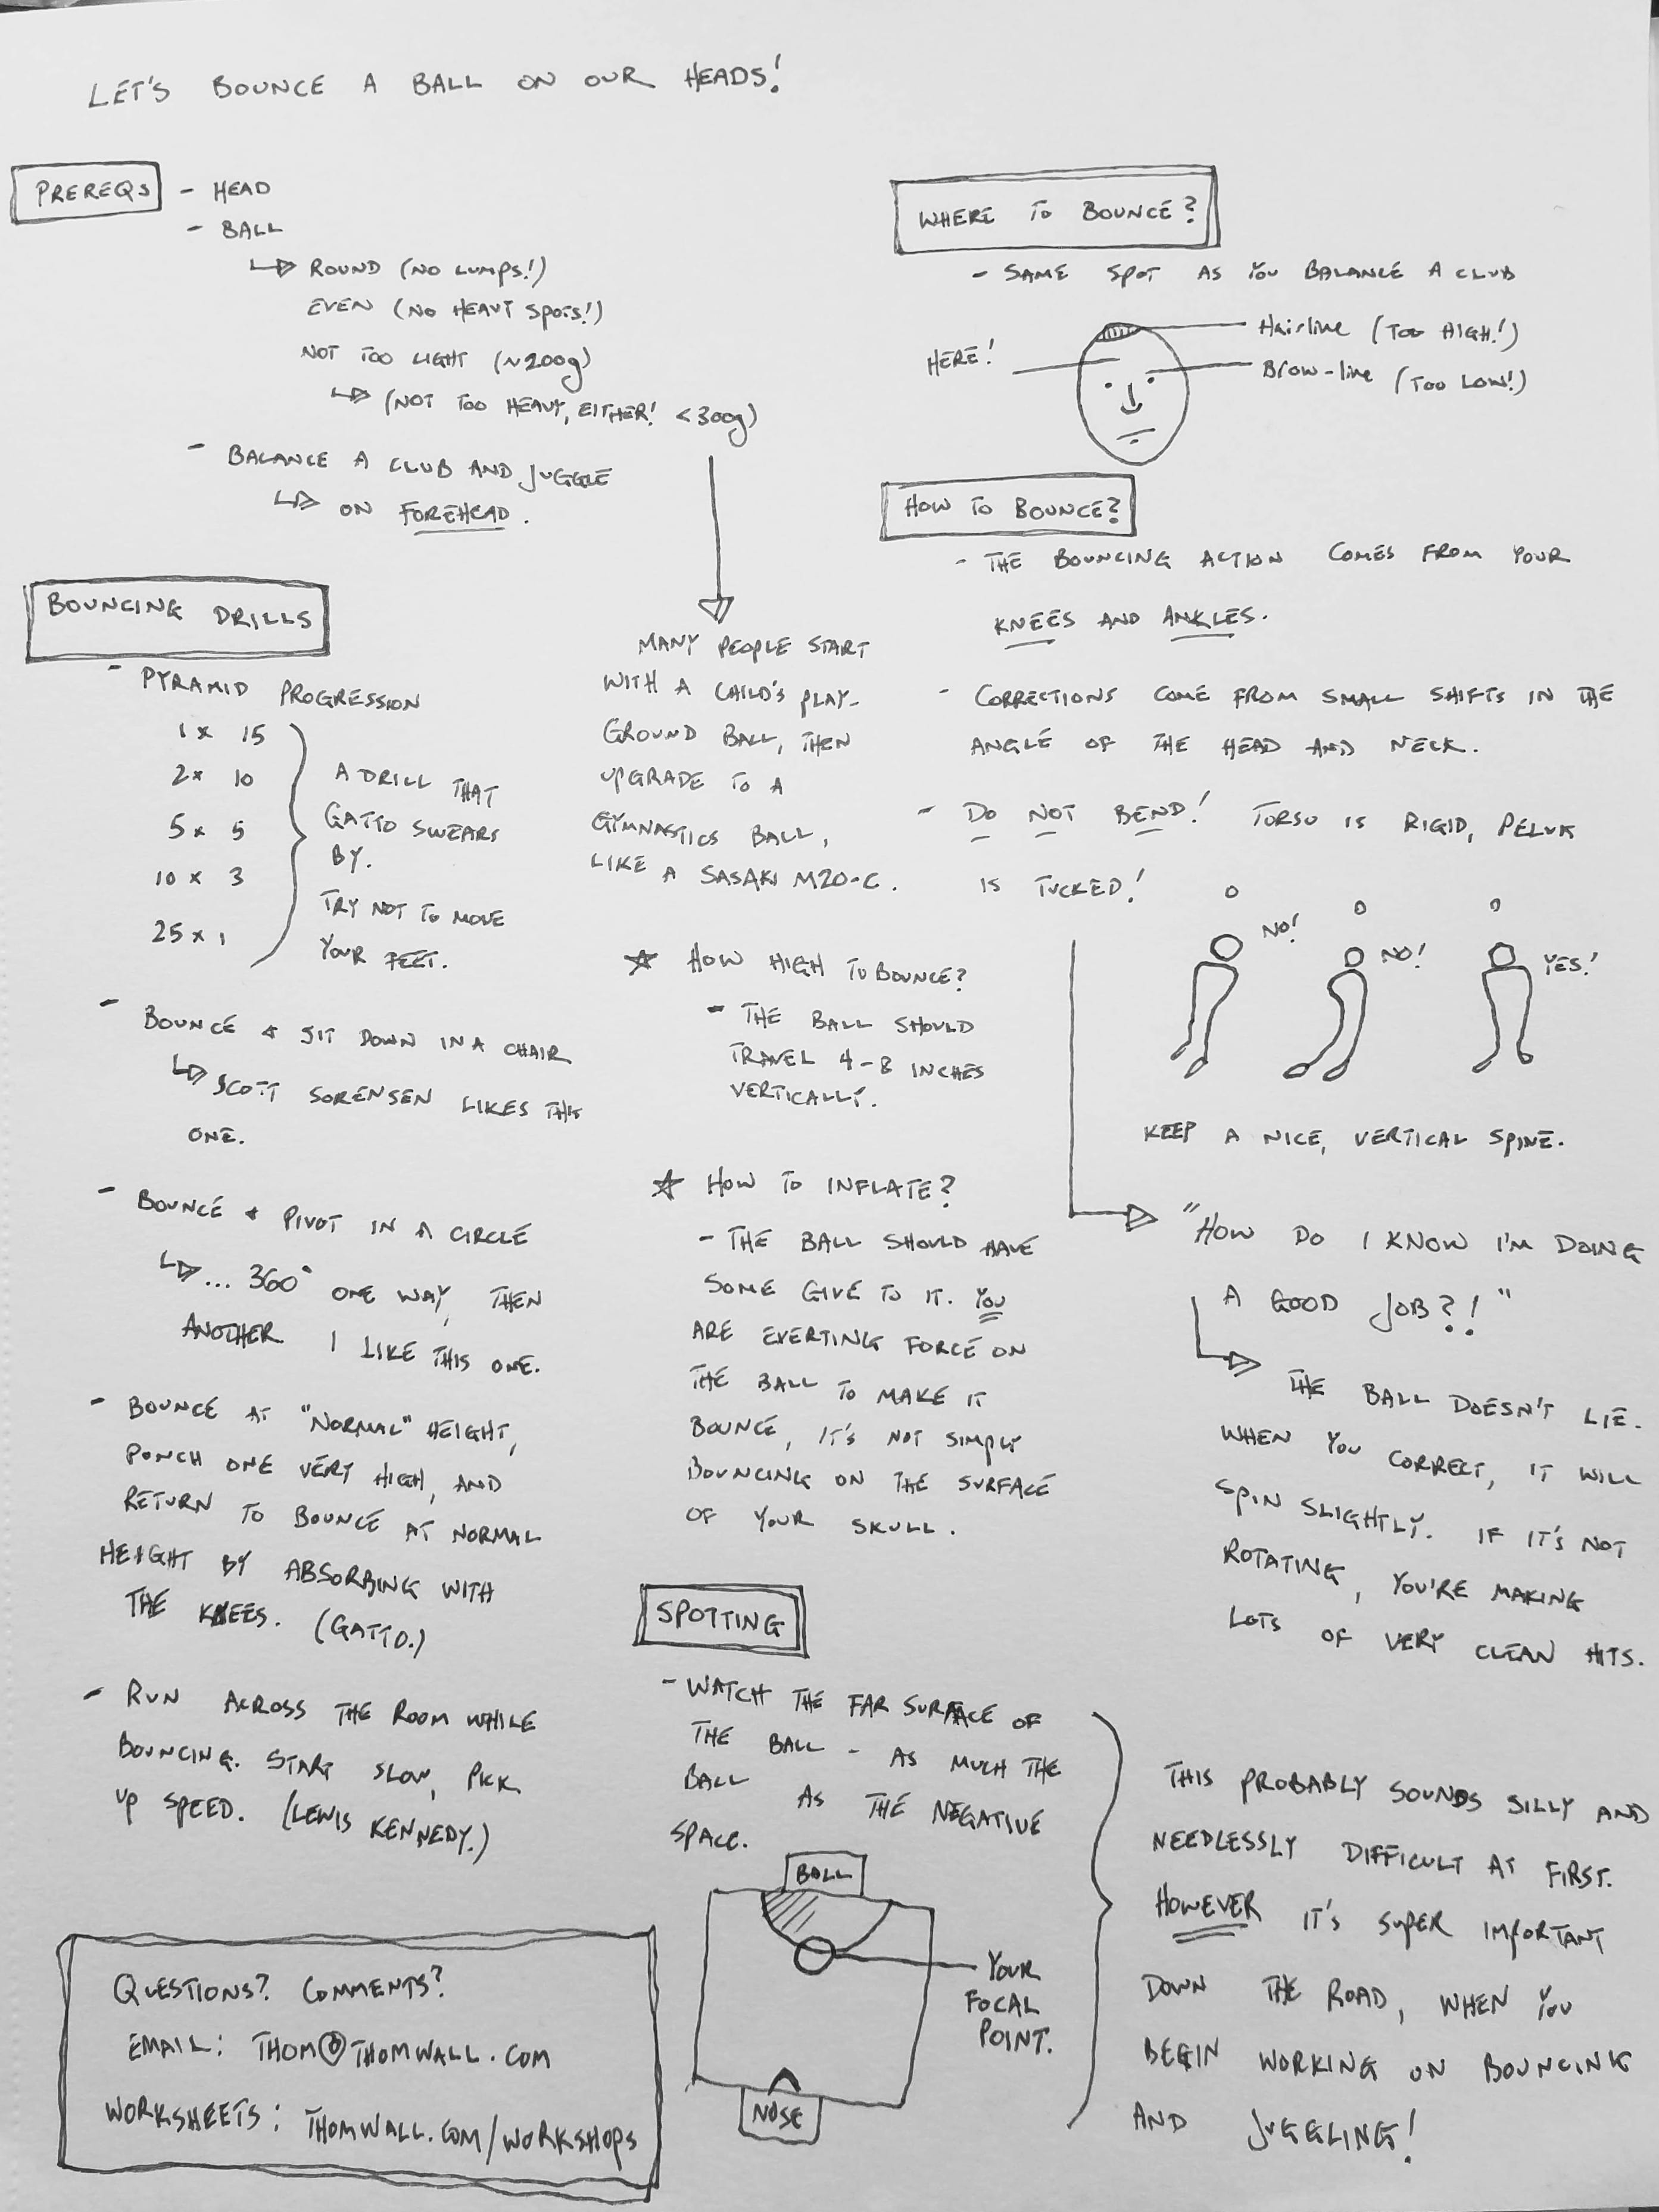 LET'S BOUNCE A BALL ON OUR HEADS!
PREREQS
- HEAD
- BALL
↳ ROUND (NO LUMPS!)
EVEN (NO HEAVY SPOTS!)
NOT TOO LIGHT (~200g)
↳ (NOT TOO HEAVY, EITHER! <300g)
- BALANCE A CLUB AND JUGGLE
↳ ON FOREHEAD.
BOUNCING DRILLS
- PYRAMID PROGRESSION
1 x 15
2 x 10
5 x 5
10 x 3
25 x 1
A DRILL THAT
GATTO SWEARS
BY.
TRY NOT TO MOVE
YOUR FEET.
- BOUNCE & SIT DOWN IN A CHAIR
↳ SCOTT SORENSEN LIKES THIS
ONE.
- BOUNCE & PIVOT IN A CIRCLE
↳ ... 360° ONE WAY, THEN
ANOTHER I LIKE THIS ONE.
- BOUNCE AT "NORMAL" HEIGHT,
PUNCH ONE VERY HIGH, AND
RETURN TO BOUNCE AT NORMAL
HEIGHT BY ABSORBING WITH
THE KNEES. (GATTO.)
- RUN ACROSS THE ROOM WHILE
BOUNCING. START SLOW, PICK
UP SPEED. (LEWIS KENNEDY.)
QUESTIONS? COMMENTS?
EMAIL: THOM@THOMWALL.COM
WORKSHEETS: THOMWALL.COM/WORKSHOPS
MANY PEOPLE START
WITH A CHILD'S PLAY-
GROUND BALL, THEN
UPGRADE TO A
GYMNASTICS BALL,
LIKE A SASAKI M20-C.
☆ HOW HIGH TO BOUNCE?
- THE BALL SHOULD
TRAVEL 4-8 INCHES
VERTICALLY.
☆ HOW TO INFLATE?
- THE BALL SHOULD HAVE
SOME GIVE TO IT. YOU
ARE EXERTING FORCE ON
THE BALL TO MAKE IT
BOUNCE, IT'S NOT SIMPLY
BOUNCING ON THE SURFACE
OF YOUR SKULL.
SPOTTING
- WATCH THE FAR SURFACE OF
THE BALL - AS MUCH THE
BALL AS THE NEGATIVE
SPACE.
BALL
YOUR
FOCAL
POINT.
NOSE
WHERE TO BOUNCE?
- SAME SPOT AS YOU BALANCE A CLUB
Hairline (TOO HIGH!)
HERE!
Brow-line (TOO LOW!)
HOW TO BOUNCE?
- THE BOUNCING ACTION COMES FROM YOUR
KNEES AND ANKLES.
- CORRECTIONS COME FROM SMALL SHIFTS IN THE
ANGLE OF THE HEAD AND NECK.
- DO NOT BEND! TORSO IS RIGID, PELVIS
IS TUCKED!
NO!
NO!
YES!
KEEP A NICE, VERTICAL SPINE.
"HOW DO I KNOW I'M DOING
A GOOD JOB?!"
THE BALL DOESN'T LIE.
WHEN YOU CORRECT, IT WILL
SPIN SLIGHTLY. IF IT'S NOT
ROTATING, YOU'RE MAKING
LOTS OF VERY CLEAN HITS.
THIS PROBABLY SOUNDS SILLY AND
NEEDLESSLY DIFFICULT AT FIRST.
HOWEVER IT'S SUPER IMPORTANT
DOWN THE ROAD, WHEN YOU
BEGIN WORKING ON BOUNCING
AND JUGGLING!